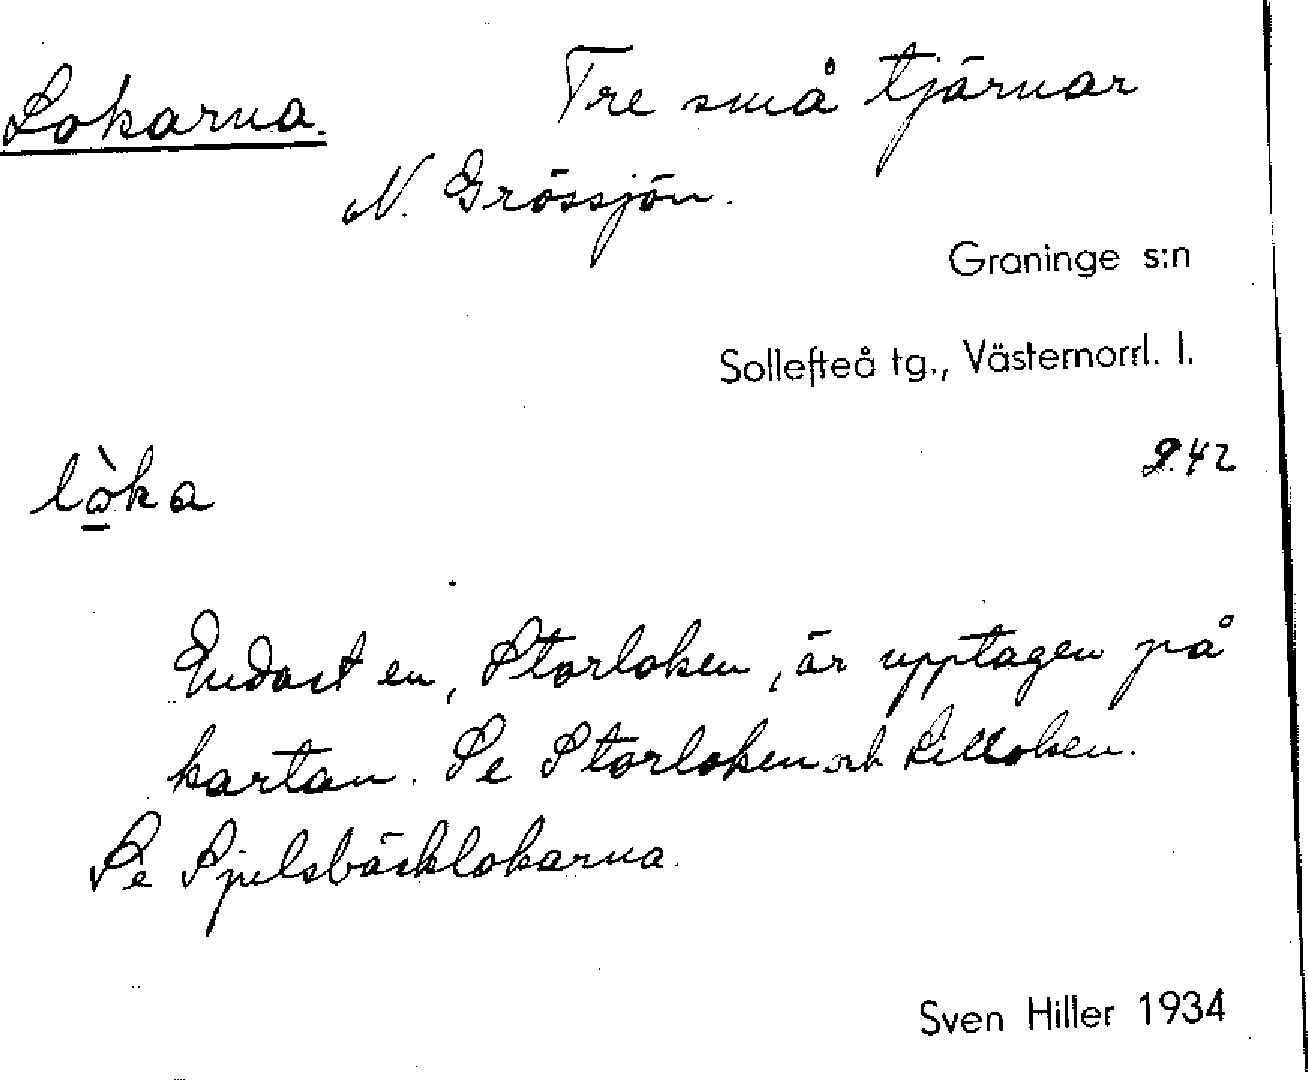 Lokarna. Tre små tjärnar
N. Grössjön.
Graninge s:n
Sollefteå tg., Västernorrl. l.
242
lò̲ka
Endast en, Storloken, är upptagen på
kartan. Se Storloken och Lilloken.
Se Sjulsbäcklokarna.
Sven Hiller 1934